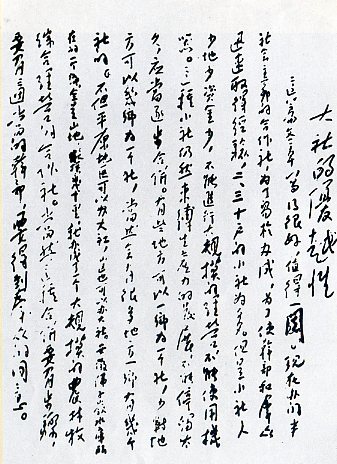 大社的優越性
这篇文章写得很好，值得一阅。现在办的半
社会主义的合作社，为了易于办成，为了使幹部和群众
迅速取得经验，二、三十户的小社为多。但是小社人
少地少资金少，不能进行大规模的经营，不能使用机
器。这种小社仍然束缚生产力的发展，不能停留太
久，应当逐步合併。有些地方可以一乡为一个社，少数地
方可以几乡为一个社，当然会有很多地方一乡有几个
社的。不但平原地区可以办大社，山区也可以办大社。安徽佛子岭水库所
在的一个乡，全是山地，纵横几十里，就办成了一个大规模的农林牧
综合经营的合作社。当然，这种合併要有步骤，
要有适当的幹部，要得到群众的同意。